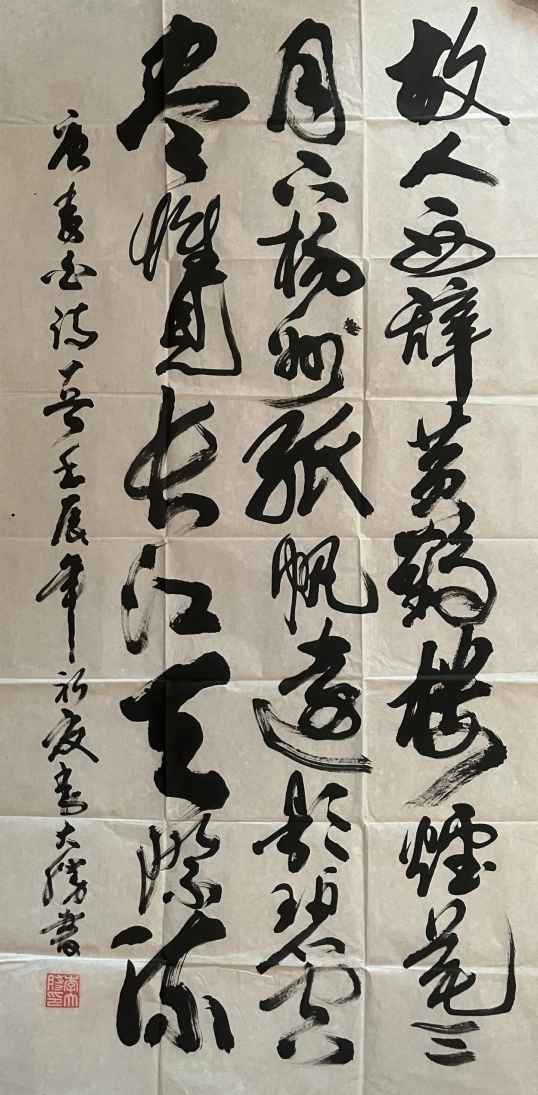 故人西辞黄鹤楼煙花三
月下杨州孤帆远影碧空
尽惟见长江天际流
唐李白诗壬辰年初夏李大胜书
李大胜印